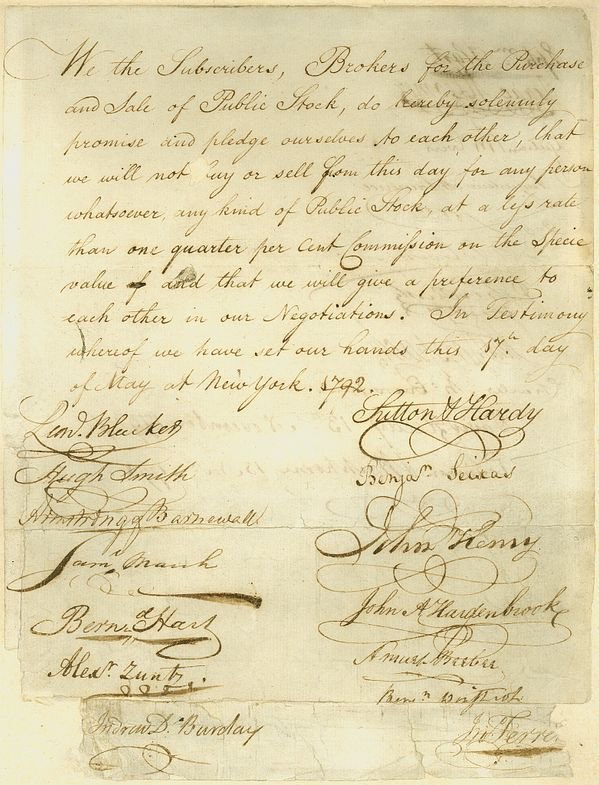 We the Subscribers, Brokers for the Purchase
and Sale of Public Stock, do hereby solemnly
promise and pledge ourselves to each other, that
we will not buy or sell from this day for any person
whatsoever, any kind of Public Stock, at a less rate
than one quarter per Cent Commission on the Specie
value of and that we will give a preference to
each other in our Negotiations. In Testimony
whereof we have set our hands this 17th day
of May at New York. 1792.
Leond. Bleecker
Sutton & Hardy
Hugh Smith
Benjan. Seixas
Armstrong & Barnewall
John Henry
Saml. March
John A Hardenbrook
Bernd. Hart
Amurt. Beebee
Alexr. Zuntz.
Andrew D. Barclay